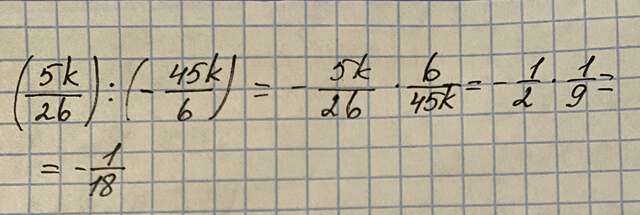 (5k/2b) : (- 45k/b) = - 5k/2b · b/45k = - 1/2 · 1/9 =
= - 1/18